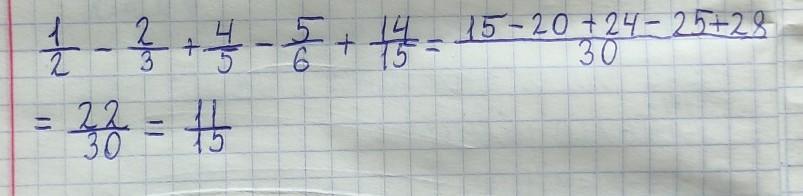 1/2 - 2/3 + 4/5 - 5/6 + 14/15 = (15-20+24-25+28)/30
= 22/30 = 11/15